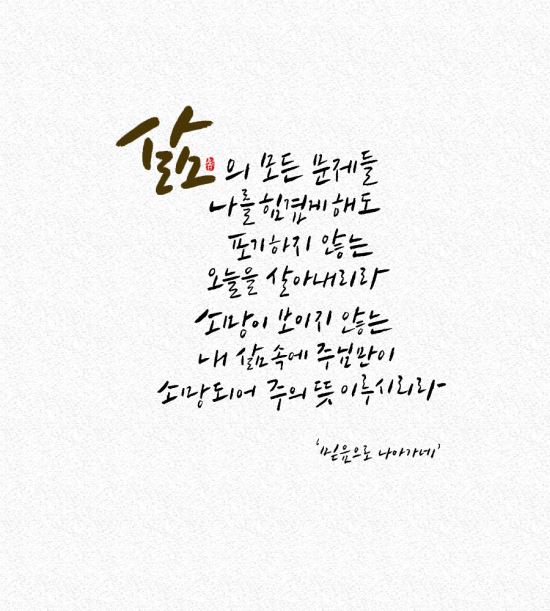 삶의 모든 문제들
나를 힘겹게 해도
포기하지 않는
오늘을 살아내리라
소망이 보이지 않는
내 삶속에 주님만이
소망되어 주의 뜻 이루시리라
'믿음으로 나아가네'